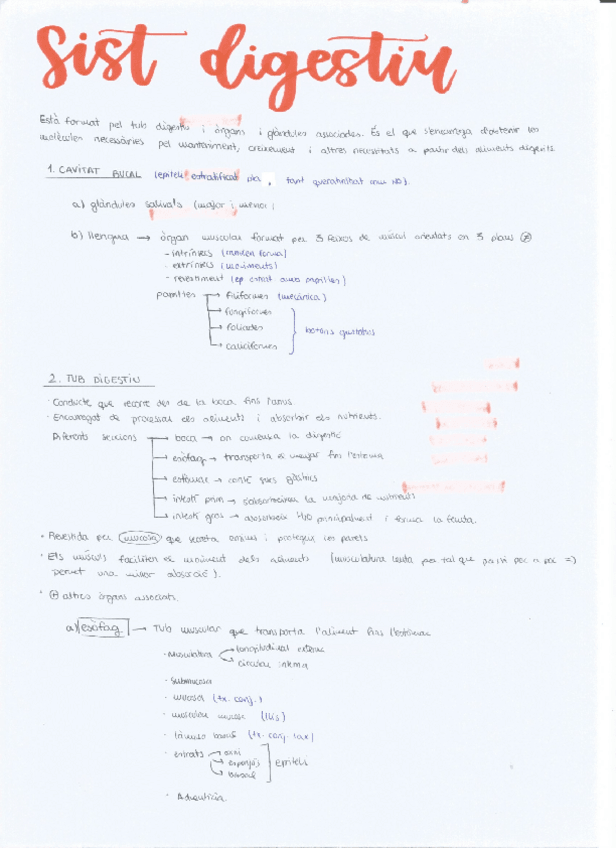 Sist digestiu
Està format pel tub digestiu i òrgans i glàndules associades. És el que s'encarrega d'obtenir les
molècules necessàries pel manteniment, creixement i altres necessitats a partir dels aliments digerits.
1. CAVITAT BUCAL (epiteli estratificat pla, tant queratinitzat com NO).
a) glàndules salivals (major i menor)
b) llengua → òrgan muscular format per 3 feixos de múscul orientats en 3 plans
- intrínsecs (modifen forma)
- extrínsecs (moviments)
- revestiment (ep. estrat. amb papil·les)
papil·les → filiformes (mecànica)
→ fungiformes
→ foliades
→ caliciformes
botons gustatius
2. TUB DIGESTIU
· Conducte que recorre des de la boca fins l'anus.
· Encarregat de processar els aliments i absorbir els nutrients.
Diferents seccions → boca → on comença la digestió
→ esòfag → transporta el menjar fins l'estómac
→ estómac → conté sucs gàstrics
→ intestí prim → s'absorbeixen la majoria de nutrients
→ intestí gros → absorbeix H2O principalment i forma la femta.
· Revestida per mucosa que secreta enzims i protegeix les parets
· Els músculs faciliten el moviment dels aliments (musculatura lenta per tal que passi poc a poc =)
permet una millor absorció).
· ⊕ altres òrgans associats.
a) esòfag → Tub muscular que transporta l'aliment fins l'estómac
· Musculatura longitudinal externa
circular interna
· Submucosa
· mucosa (tx. conj.)
· muscular mucosa (llis)
· làmina basal (tx. conj. lax)
· estrats
espinós
basal
epiteli
· Adventícia.